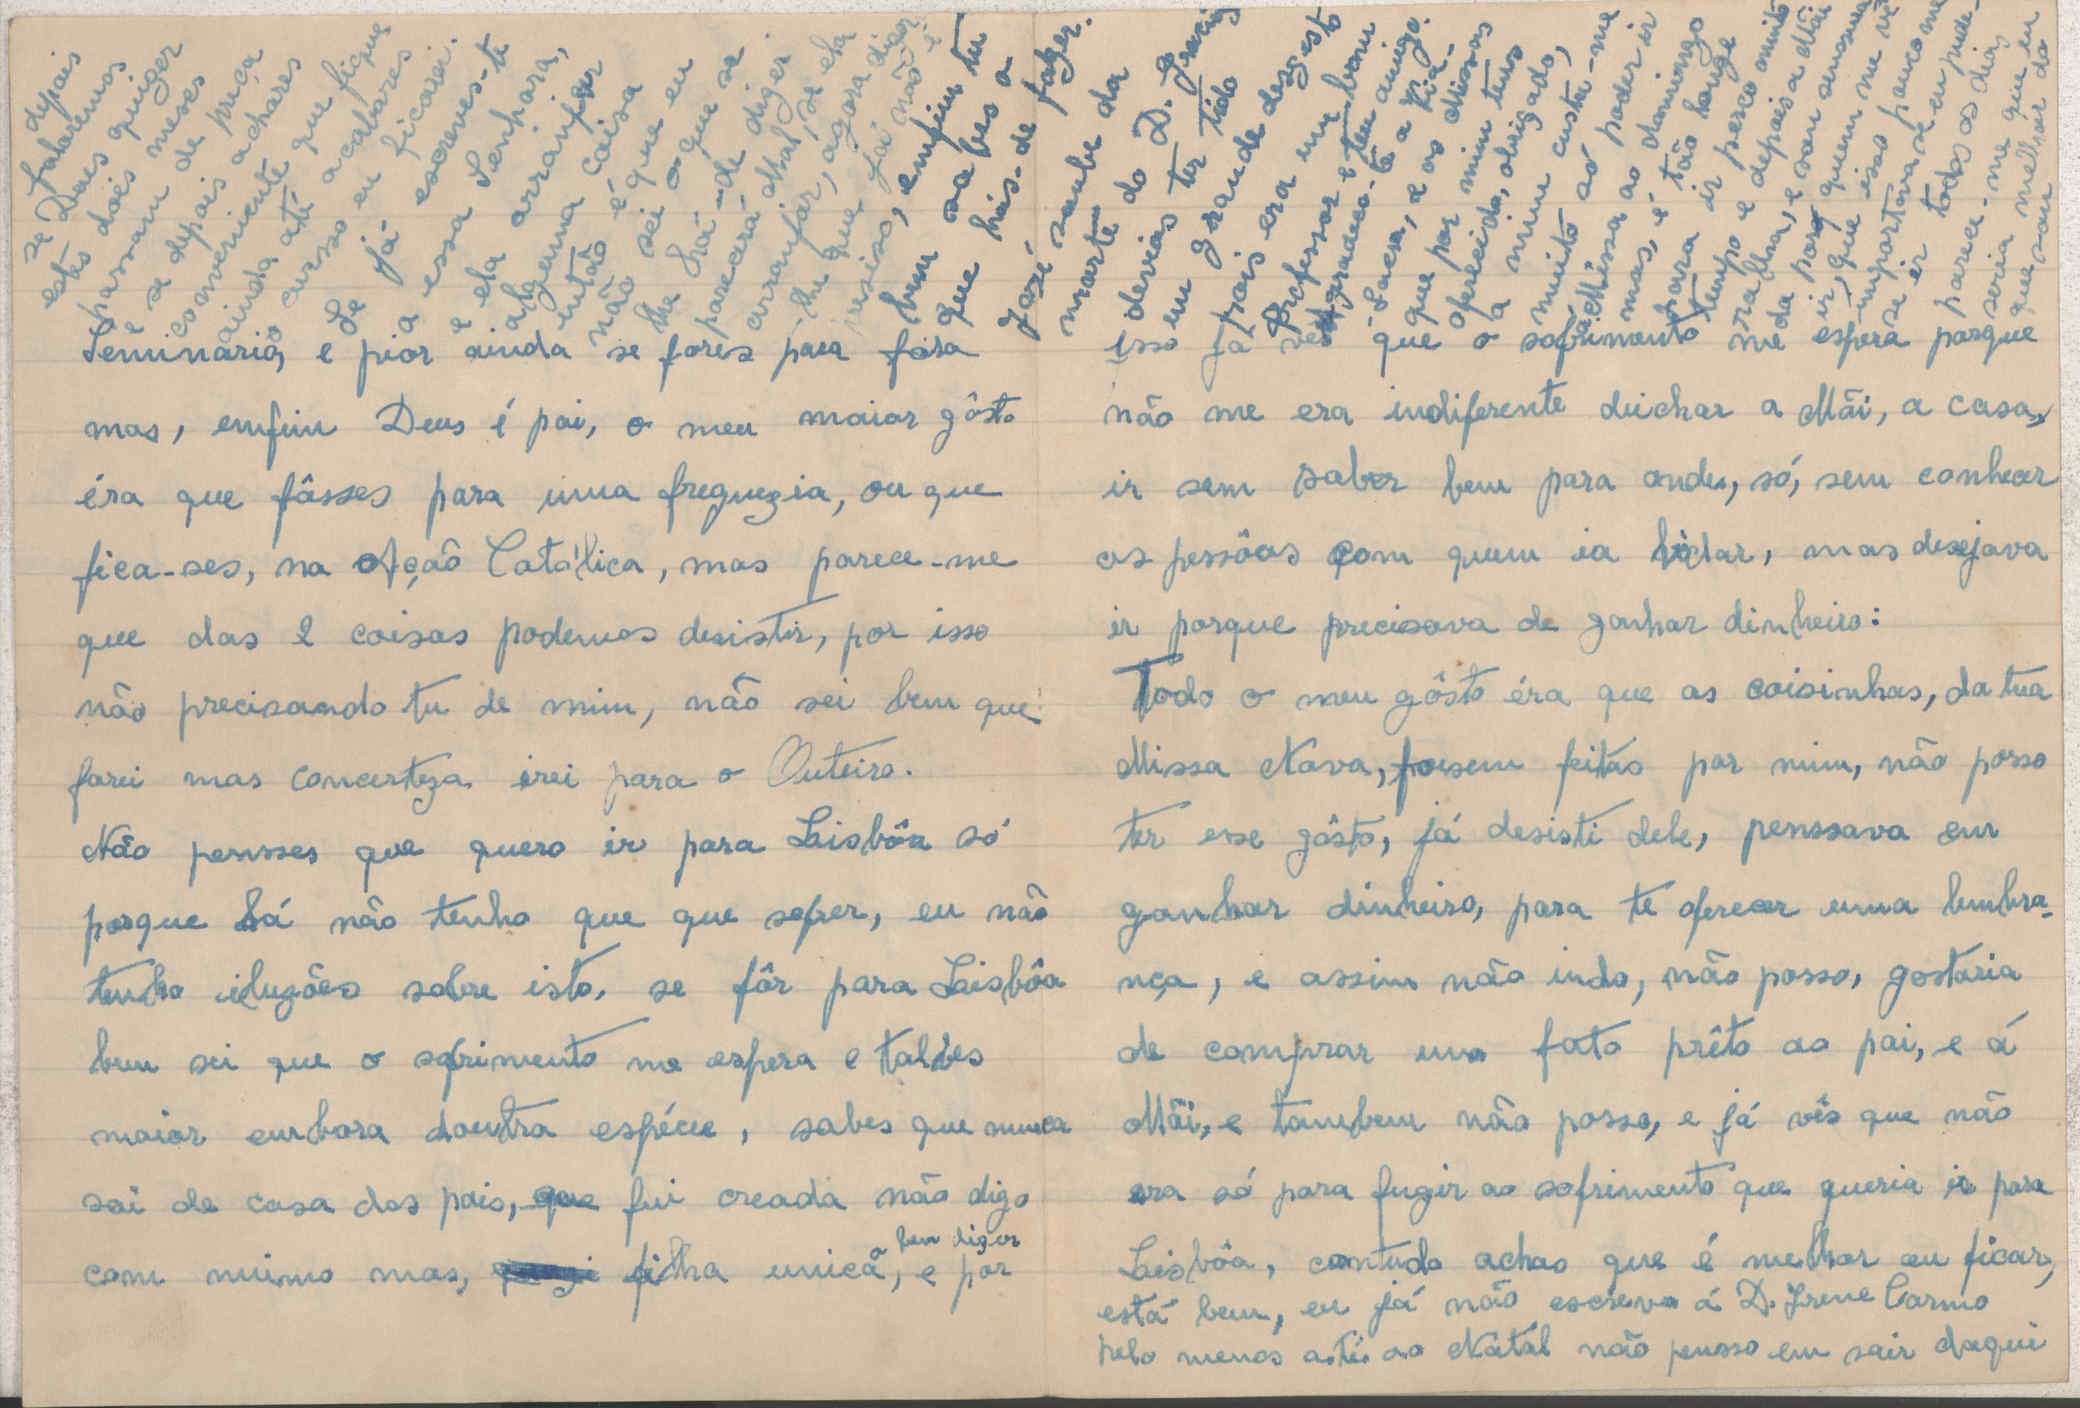 Seminario, e pior ainda se fores para fora
mas, enfim Deus é pai, o meu maior gôsto
éra que fôsses para uma freguezia, ou que
fica-ses, na Açaõ Catolica, mas parece-me
que das 2 coisas podemos desistir, por isso
não precisando tu de mim, não sei bem que
farei mas concerteza irei para o Outeiro.
Não pensses que quero ir para Lisbôa só
porque lá não tenho que que sofrer, eu não
tenho iluzões sobre isto, se fôr para Lisbôa
bem sei que o sofrimento me espera e talves
maior embora doutra espécie, sabes que nunca
sai de casa dos pais, que fui creada não digo
com mimo mas, filha unica, a bem dizer e por
isso já vês que o sofrimento me espera porque
não me era indiferente deichar a Mãi, a casa,
ir sem saber bem para onde, só, sem conhecer
as pessôas com quem ia lidar, mas desejava
ir porque precisava de ganhar dinheiro:
Todo o meu gôsto éra que as coisinhas, da tua
Missa Nova, fosem feitas por mim, não posso
ter esse gôsto, já desisti dele, penssava em
ganhar dinheiro, para te oferecer uma lembra-
nça, e assim não indo, não posso, gostaria
de comprar um fato prêto ao pai, e á
Mãi, e tambem não posso, e já vês que não
era só para fugir ao sofrimento que queria ir para
Lisbôa, contudo achas que é melhor eu ficar,
está bem, eu já não escrevo á D. Irene Carmo
pelo menos até ao Natal não pensso em sair daqui
depois
falaremos
se Deus quizer
estes dois meses
passam de preça
e se depois achares
conveniente que fique
ainda até acabares
o curso eu ficarei.
Se já escreves-te
a essa Senhora,
e ela arranjar
alguma coisa
então é que eu
não sei o que se
lhe há-de dizer.
parecerá mal, se ela
arranjar, agora dizer
-lhe que já não é
preciso, enfim tu
bem sabes o
que hás-de fazer.
José soube da
morte do D.
devias ter tido
um grande desgosto
pois era um bom
Professor e teu amigo.
Agradece-te a Tia
Lucia, e as Missas
que por mim tens
oferecido, obrigado,
a mim custa-me
muito só poder ir
á Missa ao domingo
mas, é tão longe
para ir perco muito
tempo e depois a Mãi
ralha, e sou censurada
da por quem me vê
ir, que isso pouco me
importava se eu pude-
se ir todos os dias
parece-me que eu
seria melhor do
que sou